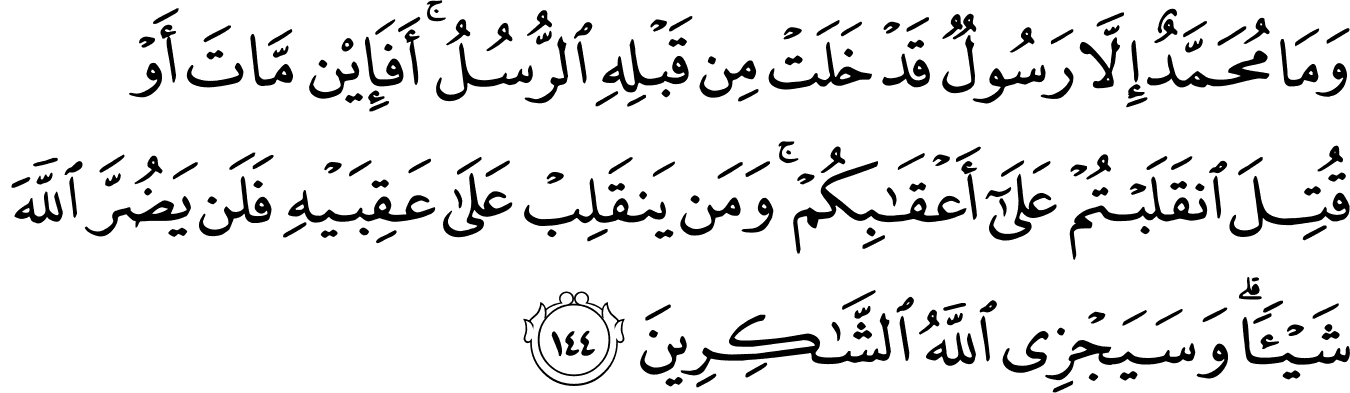 وَمَا مُحَمَّدٌ إِلَّا رَسُولٌ قَدْ خَلَتْ مِن قَبْلِهِ ٱلرُّسُلُ ۚ أَفَإِي۟ن مَّاتَ أَوْ
قُتِلَ ٱنقَلَبْتُمْ عَلَىٰٓ أَعْقَـٰبِكُمْ ۚ وَمَن يَنقَلِبْ عَلَىٰ عَقِبَيْهِ فَلَن يَضُرَّ ٱللَّهَ
شَيْـًٔا ۗ وَسَيَجْزِى ٱللَّهُ ٱلشَّـٰكِرِينَ ١٤٤